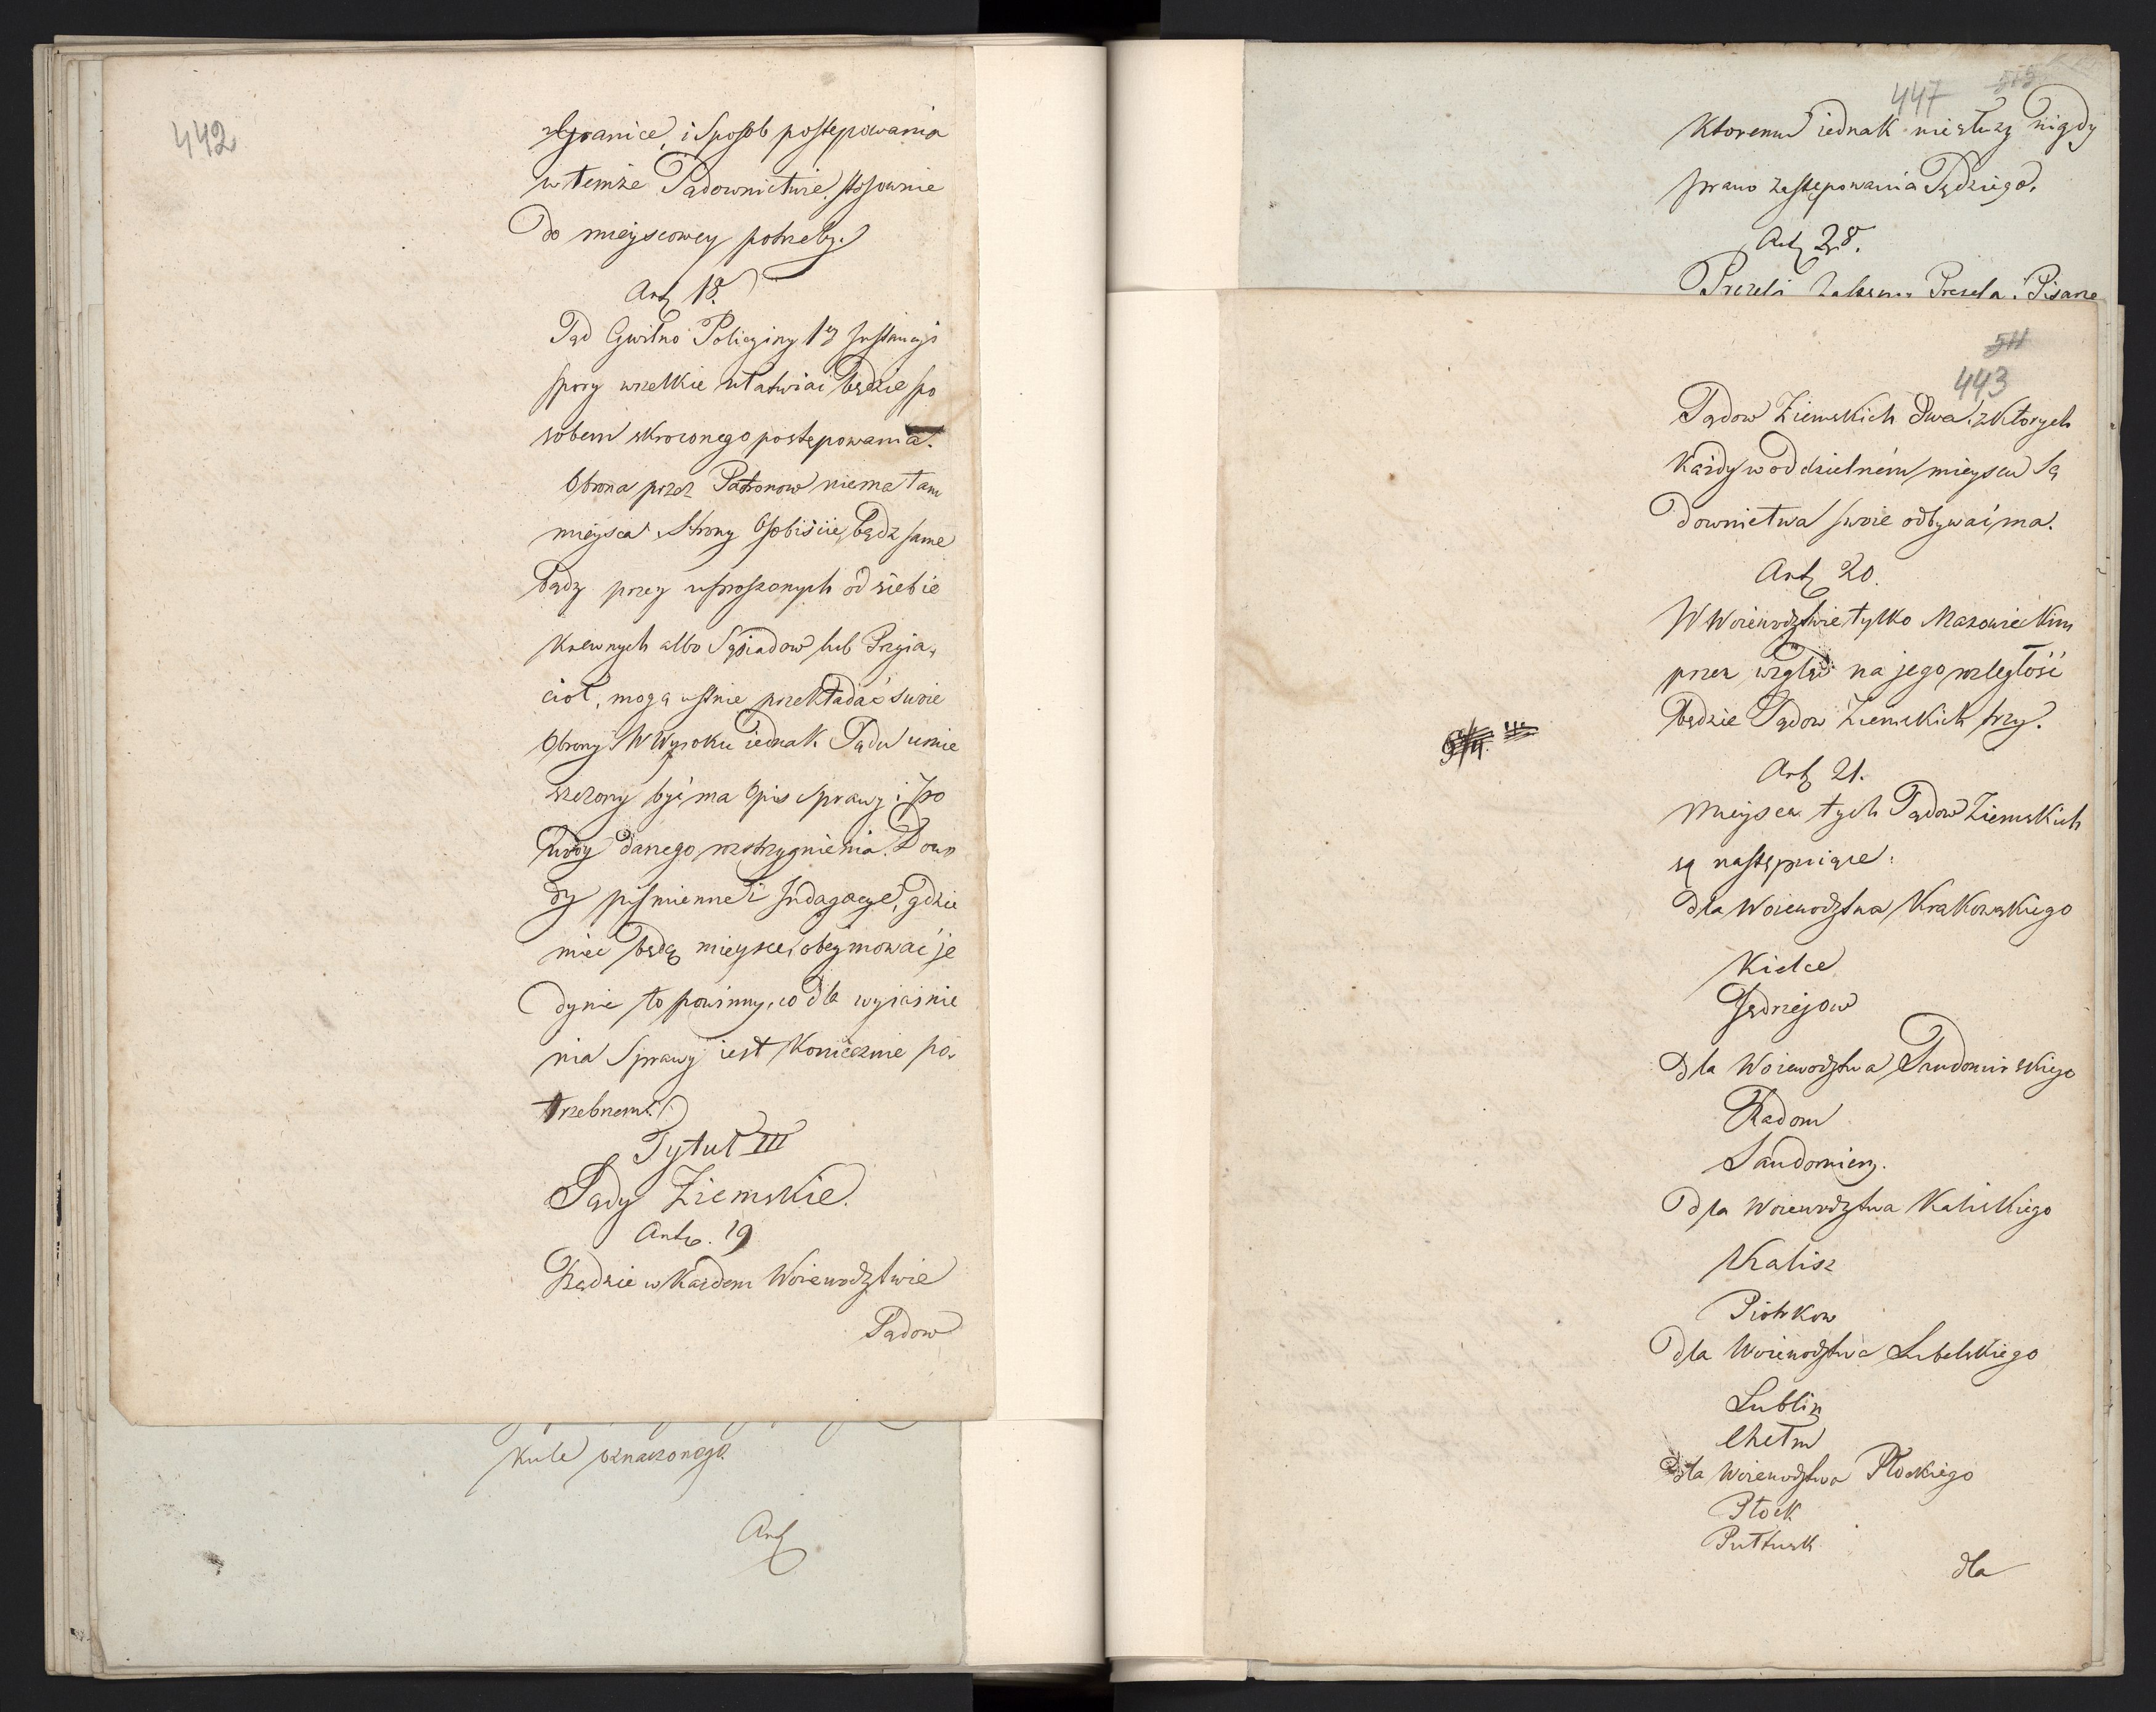 442
Granice, i Sposob postępowania
w temże Sądownictwie, stosownie
do mieyscowey potrzeby.
Art. 18.
Sąd Cywilno Policyiny 1ey Instancyi
spory wszelkie ułatwiać będzie spo
sobem skroconego postępowania.
Obrona przez Patronow niema tam
mieysca. Strony Osobiście, bądz same
bądz przez uproszonych od siebie
Krewnych albo Sąsiadow lub Przyia,
cioł, mogą ustnie przekładać swoie
Obrony. W Wyroku iednak Sądu umie
szczony być ma Opis Sprawy i Po
wody danego rozstrzygnienia. Dowo
dy pismienne i Indagacye, gdzie
mieć będą mieysce, obeymować je
dynie to powinny, co dla wyiaśnie
nia Sprawy iest koniecznie po,
trzebnem.
Tytuł III
Sądy Ziemskie.
Art. 19
Będzie w Kazdem Woiewodztwie
Sądow
kule oznaczonego.
Art
447 515
Ktoremu iednak niesłuzy nigdy
prawo zastępowania Sędziego.
Art 28.
Prezesi Prezesa i Pisarze
511
443
Sądow Ziemskich Dwa, z Ktorych
Każdy w oddzielném mieyscu Są
downictwa swoie odbywać ma.
Art 20.
W Woiewodztwie tylko Mazowieckim
przez wzgląd na jego rozległość
będzie Sądow Ziemskich trzy.
Art 21.
Mieysca tych Sądow Ziemskich
są następuiące:
dla Woiewodztwa Krakowskiego
Kielce
Jędrzejow
dla Woiewodztwa Sandomirskiego
Radom
Sandomierz.
dla Woiewodztwa Kaliskiego
Kalisz
Piotrkow
dla Woiewodztwa Lubelskiego
Lublin
Chełm
dla Woiewodztwa Płockiego
Płock
Pułtusk
dla